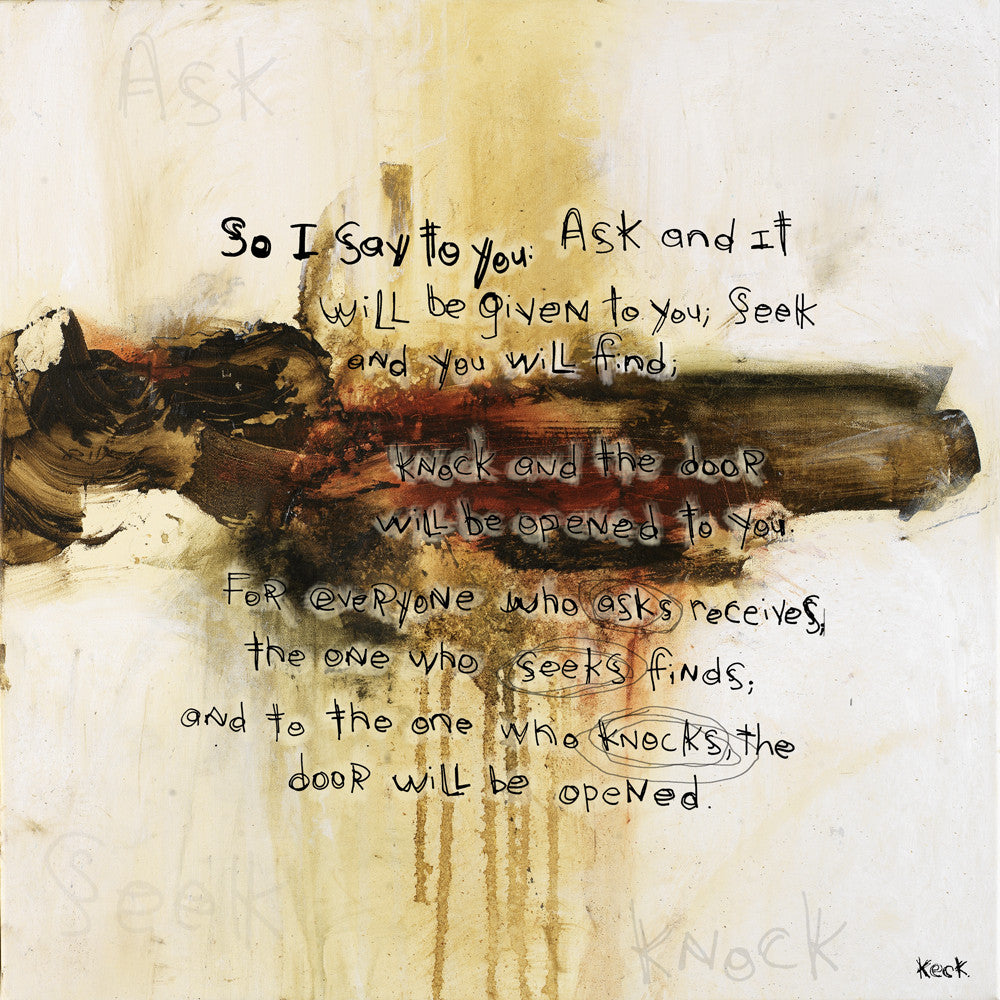 Ask
So I say to you: Ask and it
will be given to you; seek
and you will find;
knock and the door
will be opened to you
For everyone who asks receives,
the one who seeks finds;
and to the one who knocks, the
door will be opened.
Seek
knock
Keck